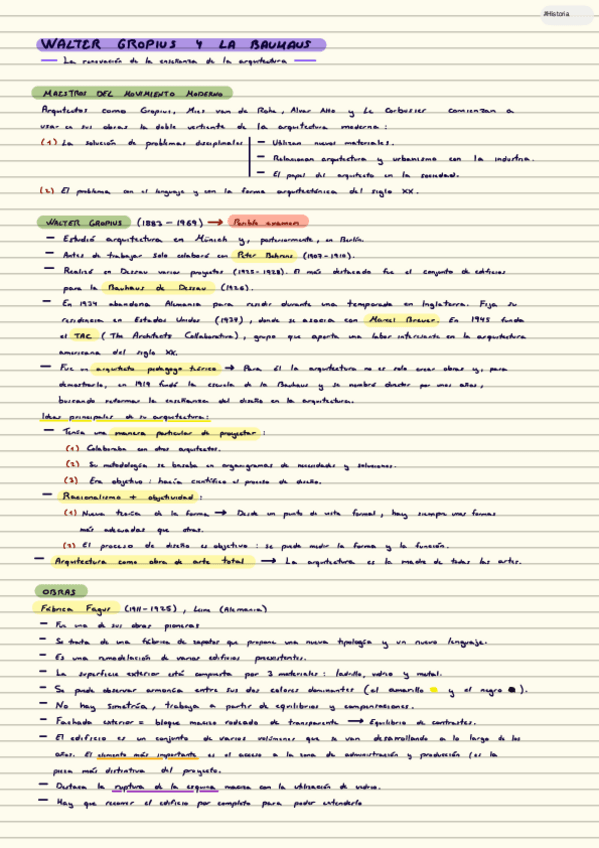 #Historia
WALTER GROPIUS Y LA BAUHAUS
— La renovación de la enseñanza de la arquitectura —
MAESTROS DEL MOVIMIENTO MODERNO
Arquitectos como Gropius, Mies van de Rohe, Alvar Alto y Le Corbusier comienzan a
usar en sus obras la doble vertiente de la arquitectura moderna:
(1) La solución de problemas disciplinales — Utilizan nuevos materiales.
— Relacionan arquitectura y urbanismo con la industria.
— El papel del arquitecto en la sociedad.
(2) El problema con el lenguaje y con la forma arquitectónica del siglo XX.
WALTER GROPIUS (1883 - 1969) → Posible examen
— Estudió arquitectura en Múnich y, posteriormente, en Berlín.
— Antes de trabajar solo colaboró con Peter Behrens (1907-1910).
— Realizó en Dessau varios proyectos (1925-1928). El más destacado fue el conjunto de edificios
para la Bauhaus de Dessau (1926).
— En 1934 abandona Alemania para residir durante una temporada en Inglaterra. Fija su
residencia en Estados Unidos (1938), donde se asocia con Marcel Breuer. En 1945 funda
el TAC (The Architects Collaborative), grupo que aporta una labor interesante en la arquitectura
americana del siglo XX.
— Fue un arquitecto pedagogo teórico → Para él la arquitectura no es solo crear obras y, para
demostrarlo, en 1919 fundó la escuela de la Bauhaus y se nombró director por unos años,
buscando reformar la enseñanza del diseño en la arquitectura.
Ideas principales de su arquitectura:
— Tenía una manera particular de proyectar:
(1) Colaboraba con otros arquitectos.
(2) Su metodología se basaba en organigramas de necesidades y soluciones.
(3) Era objetivo: hacía científico el proceso de diseño.
— Racionalismo + objetividad:
(1) Nueva teoría de la forma → Desde un punto de vista formal, hay siempre unas formas
más adecuadas que otras.
(2) El proceso de diseño es objetivo: se puede medir la forma y la función.
— Arquitectura como obra de arte total → La arquitectura es la madre de todas las artes.
OBRAS
Fábrica Fagus (1911-1925), (Alemania)
— Fue una de sus obras pioneras
— Se trata de una fábrica de zapatos que propone una nueva tipología y un nuevo lenguaje.
— Es una remodelación de varios edificios preexistentes.
— La superficie exterior está compuesta por 3 materiales: ladrillo, vidrio y metal.
— Se puede observar armonía entre sus dos colores dominantes (el amarillo y el negro).
— No hay simetría, trabaja a partir de equilibrios y compensaciones.
— Fachada exterior = bloque macizo rodeado de transparente → Equilibrio de contrastes.
— El edificio es un conjunto de varios volúmenes que se van desarrollando a lo largo de los
años. El elemento más importante es el acceso a la zona de administración y producción (es la
pieza más distintiva del proyecto.
— Destaca la ruptura de la esquina maciza con la utilización de vidrio.
— Hay que recorrer el edificio por completo para poder entenderlo